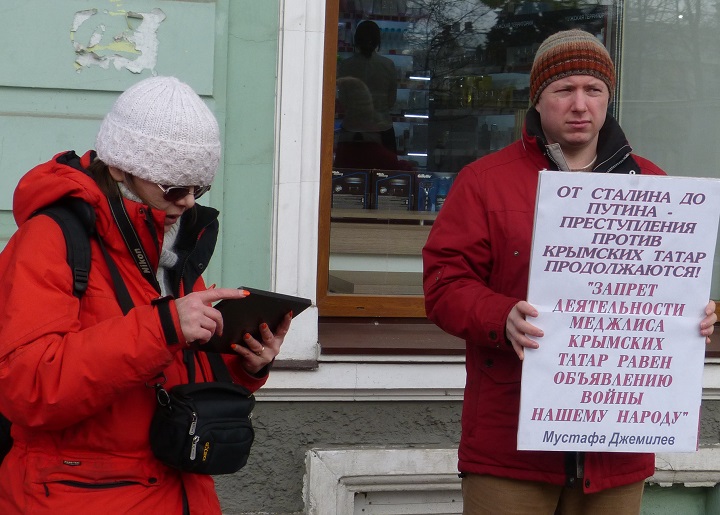 ОТ СТАЛИНА ДО
ПУТИНА -
ПРЕСТУПЛЕНИЯ
ПРОТИВ
КРЫМСКИХ ТАТАР
ПРОДОЛЖАЮТСЯ!
"ЗАПРЕТ
ДЕЯТЕЛЬНОСТИ
МЕДЖЛИСА
КРЫМСКИХ
ТАТАР РАВЕН
ОБЪЯВЛЕНИЮ
ВОЙНЫ
НАШЕМУ НАРОДУ"
Мустафа Джемилев
Nikon